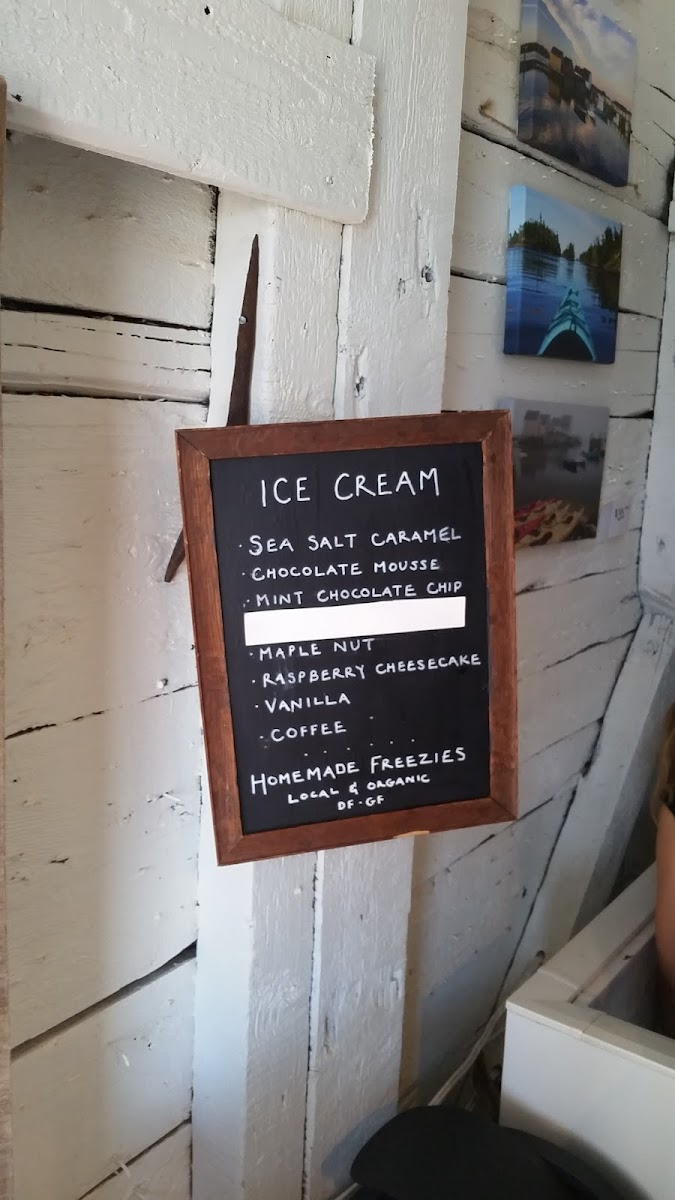 ICE CREAM
· SEA SALT CARAMEL
· CHOCOLATE MOUSSE
· MINT CHOCOLATE CHIP
· MAPLE NUT
· RASPBERRY CHEESECAKE
· VANILLA
· COFFEE
· · · · · ·
HOMEMADE FREEZIES
LOCAL & ORGANIC
DF · GF